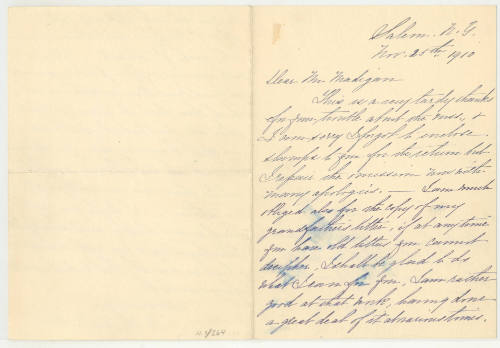 Salem. N.Y.
Nov. 25th 1910
Dear Mr Madigan
This is a very tardy thanks
for your trouble about the mss, &
I am sorry I forgot to enclose
stamps to you for the return but
I repair the omission now with
many apologies. — I am much
obliged also for the copy of my
grandfather's letter, if at any time
you have old letters you cannot
decipher, I shall be glad to do
what I can for you, I am rather
good at that work, having done
a great deal of it at various times.